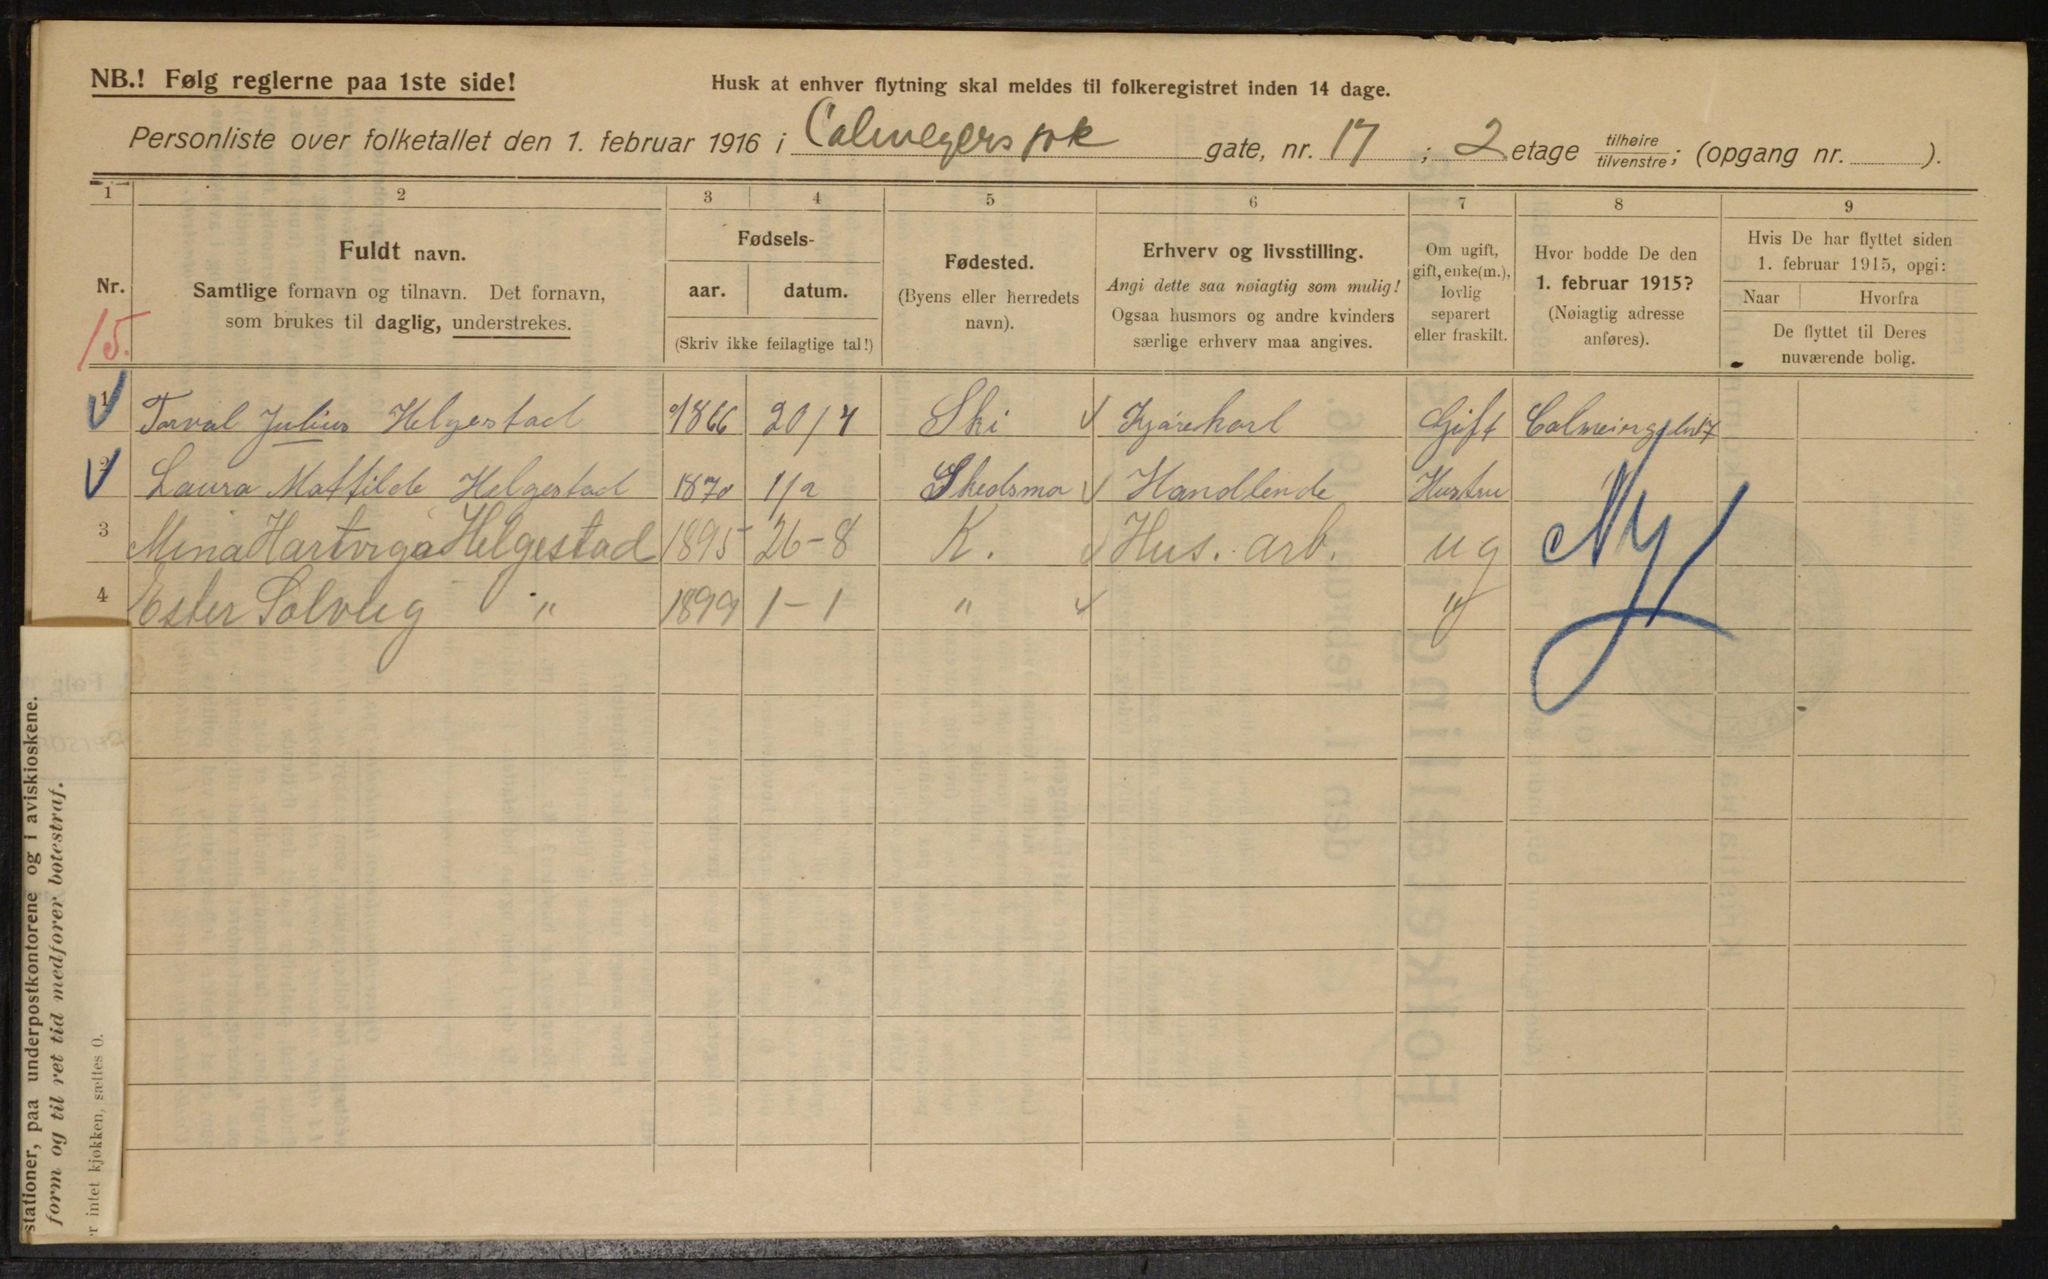 NB.! Følg reglerne paa 1ste side!
Husk at enhver flytning skal meldes til folkeregistret inden 14 dage.
Personliste over folketallet den 1. februar 1916 i gate, nr. 17; 2 etage tilhøire tilvenstre; (opgang nr. ).
1 2 3 4 5 6 7 8 9
Nr.
15.
Fuldt navn.
Samtlige fornavn og tilnavn. Det fornavn,
som brukes til daglig, understrekes.
Fødsels-
aar. datum.
(Skriv ikke feilagtige tal!)
Fødested.
(Byens eller herredets
navn).
Erhverv og livsstilling.
Angi dette saa nøiagtig som mulig!
Ogsaa husmors og andre kvinders
særlige erhverv maa angives.
Om ugift,
gift, enke(m.),
lovlig
separert
eller fraskilt.
Hvor bodde De den
1. februar 1915?
(Nøiagtig adresse
anføres).
Hvis De har flyttet siden
1. februar 1915, opgi:
Naar Hvorfra
De flyttet til Deres
nuværende bolig.
1 Torval Julius Helgestad 1866 20/4 Ski Kjørekarl Gift
2 Laura Matfilde Helgestad 1870 1/2 Skedsmo Handlende Hustru
3 Mina Hartviga Helgestad 1895 26-8 K. Hus. arb. ug Ny
4 Ester Solveig " 1899 1-1 " "
stationer, paa underpostkontorene og i aviskioskene.
form og til ret tid medfører botestraf.
r intet kjøkken, sættes 0.